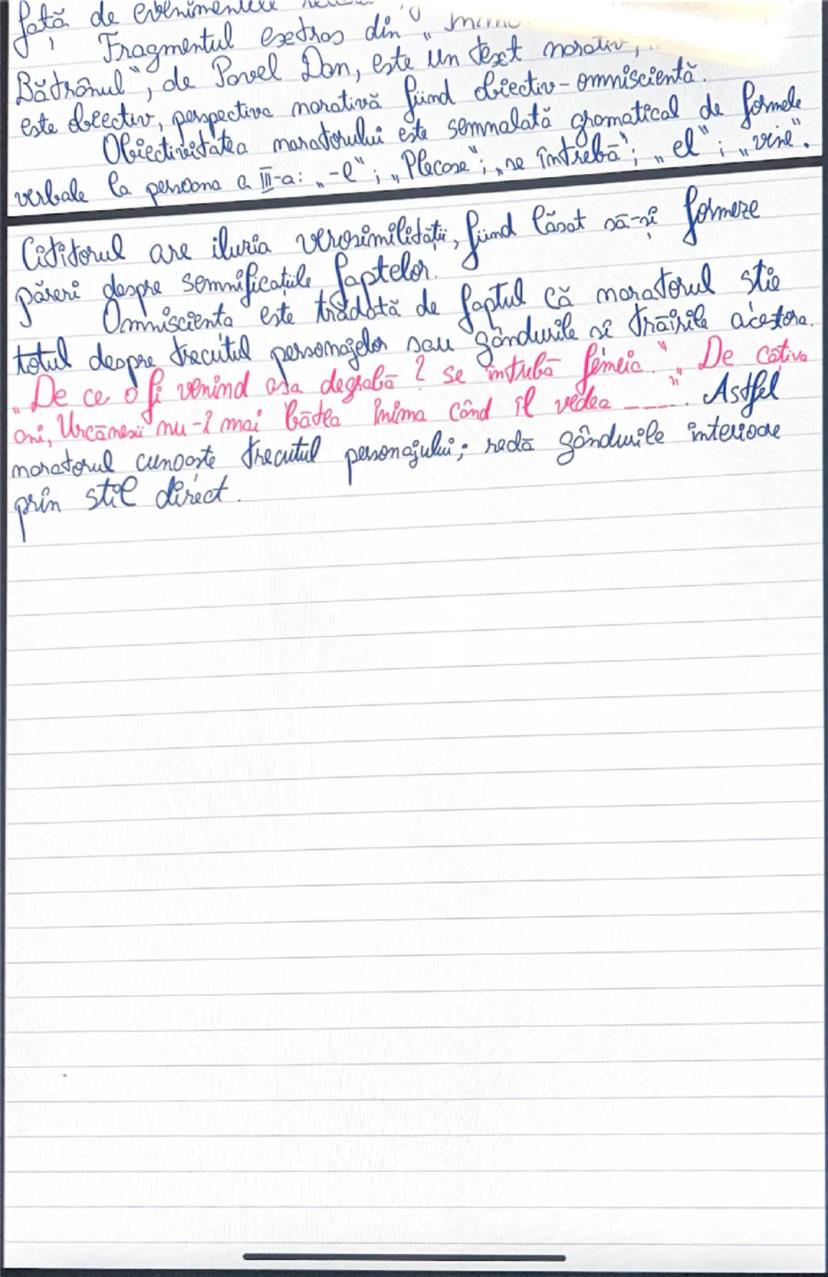 față de evenimentele
Fragmentul extras din „
Bătrânul", de Pavel Dan, este un text narativ,
este obiectiv, perspectiva narativă fiind obiectiv-omniscientă.
Obiectivitatea naratorului este semnalată gramatical de formele
verbale la persoana a III-a: „-l"; „Plecase"; „se întrebă"; „el"; „vine".
Cititorul are iluzia verosimilității, fiind lăsat să-și formeze
păreri despre semnificațiile faptelor.
Omnisciența este trădată de faptul că naratorul stie
totul despre trecutul personajelor sau gândurile si trăirile acestora.
„De ce o fi venind asa degrabă ? se întrebă femeia." „De câtiva
ani, Urcănesii nu-i mai bătea inima când îl vedea ____". Astfel
naratorul cunoaste trecutul personajului; redă gândurile interioare
prin stil direct.